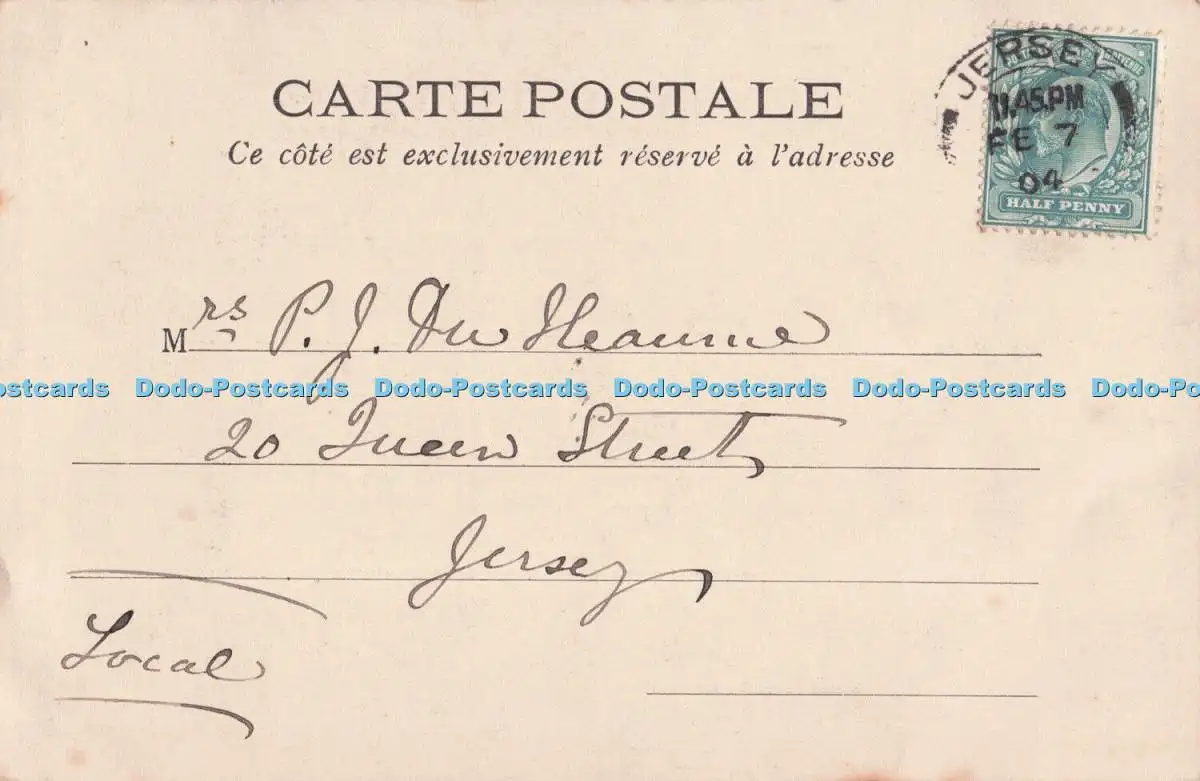 CARTE POSTALE
Ce côté est exclusivement réservé à l'adresse
JERSEY
11.45.PM
FE 7
04
HALF PENNY
Mrs P. J. Du Heaume
ostcards Dodo-Postcards Dodo-Postcards Dodo-Postcards Dodo-Postcards Dodo-Po
20 Queen Street
Jersey
Local